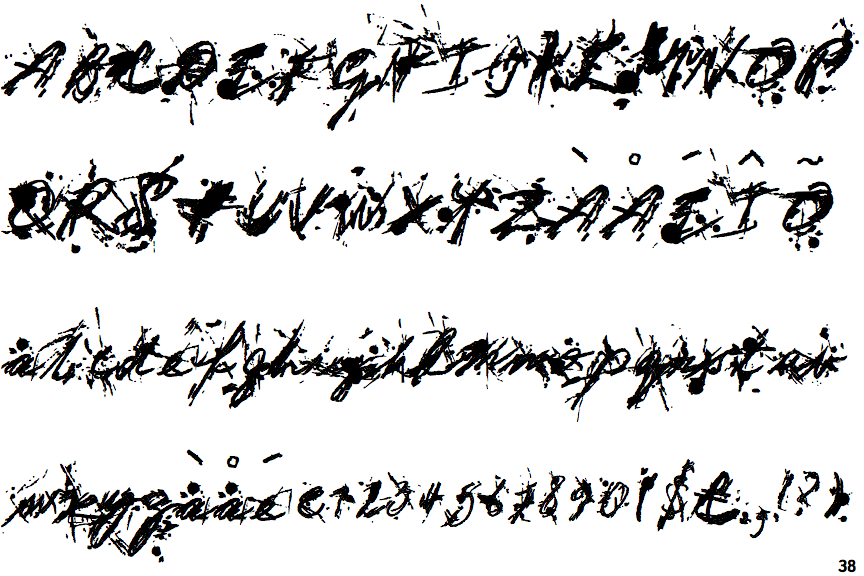 ABCDEFGHIJKLMNOP
QRSTUVWXYZÀÅÉÎÕ
abcdefghijklmnopqrstuv
wxyzàåé&1234567890!$£.,!?
38